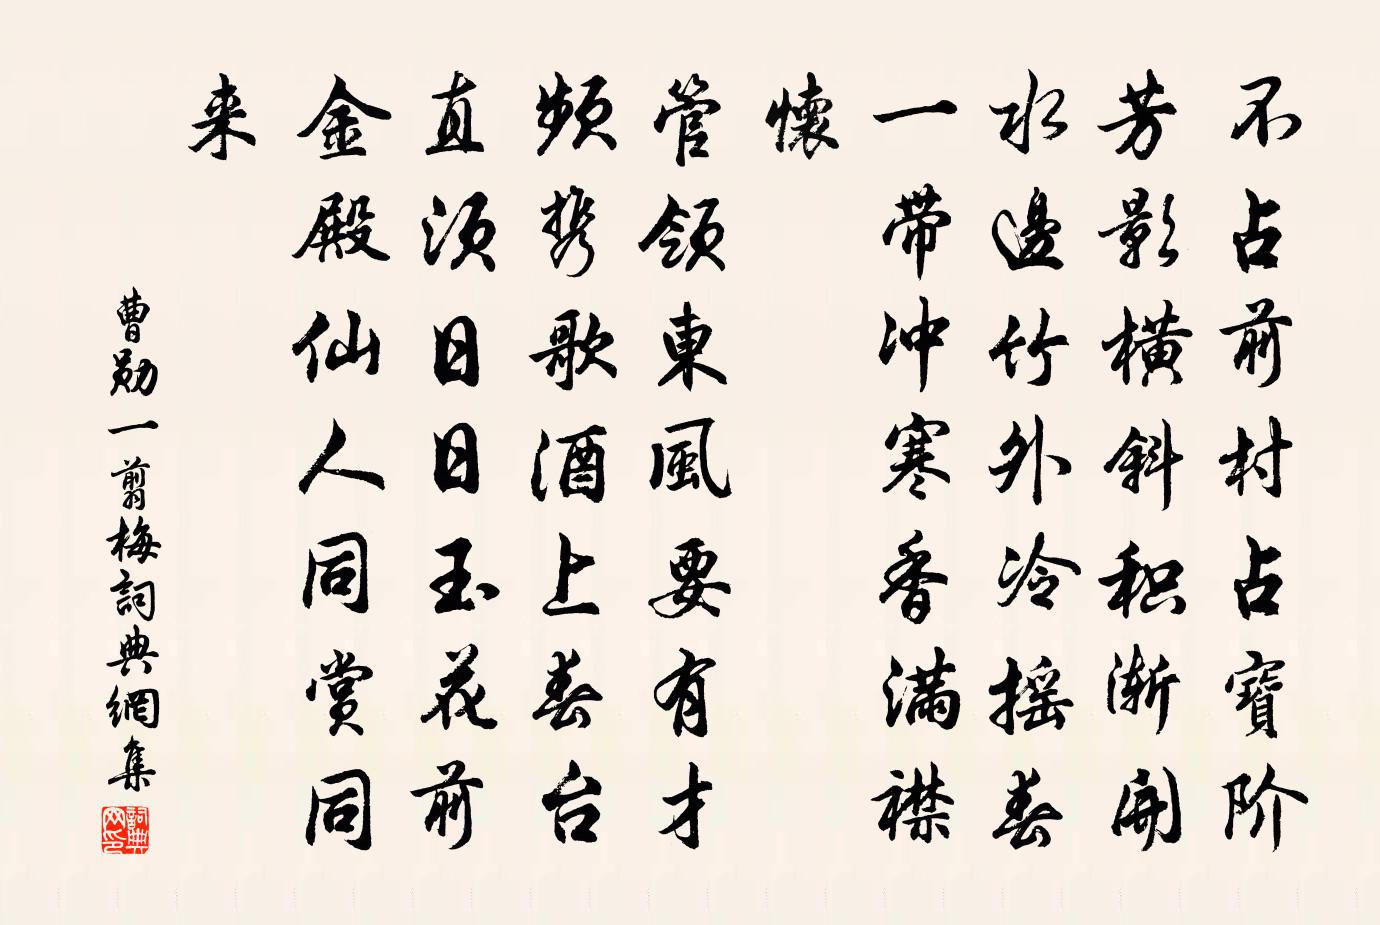 不占前村占寶阶
芳影横斜积渐開
水邊竹外冷摇春
一带冲寒香满襟
懷
管领東風要有才
频携歌酒上春台
直须日日玉花前
金殿仙人同赏同
来
曹勋一剪梅詞典網集
詞典网印